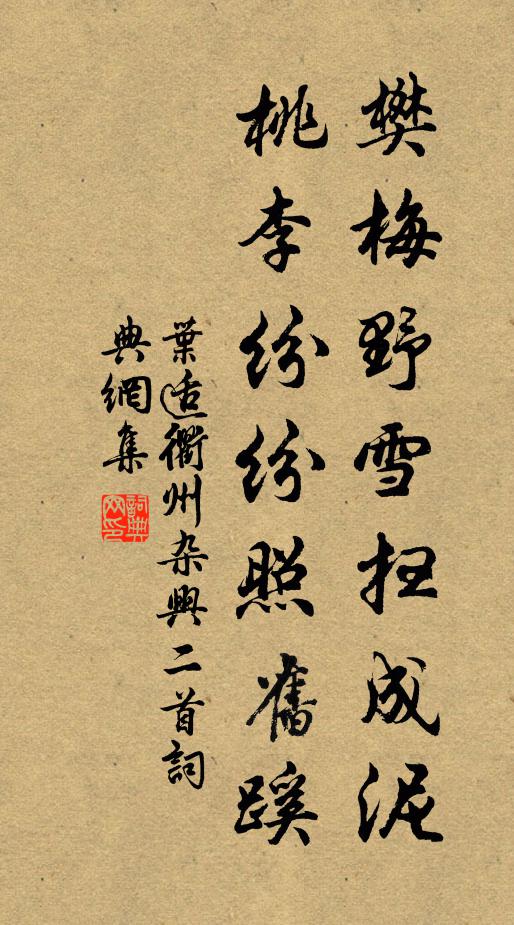 樊梅野雪扫成泥
桃李纷纷照舊蹊
葉适衢州杂興二首詞
典網集
詞典网印